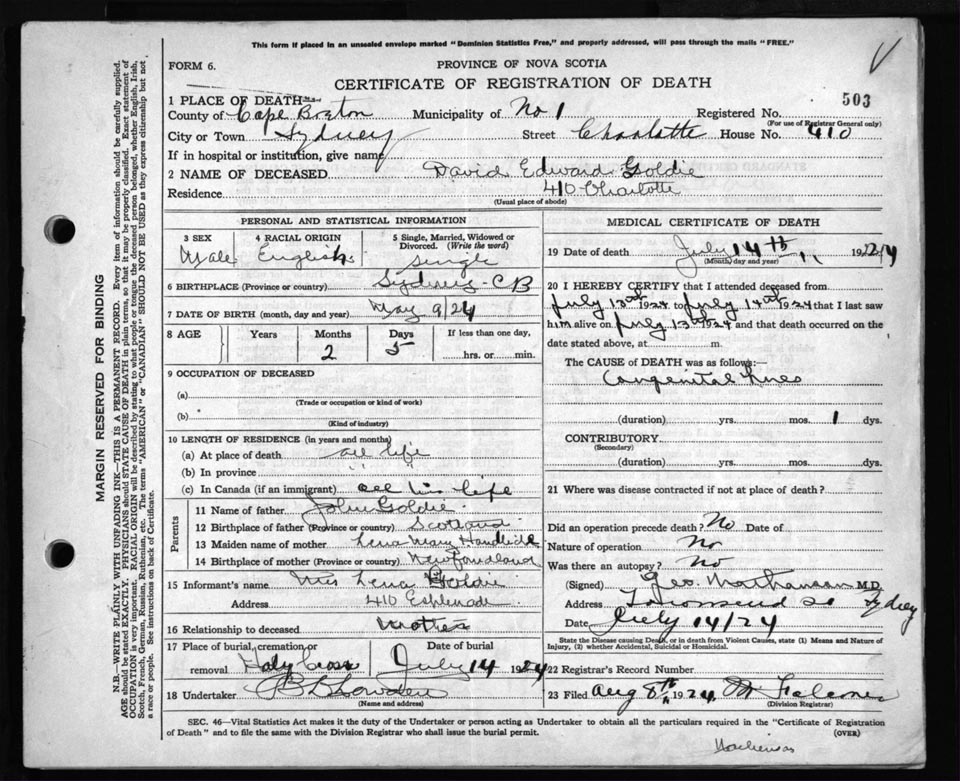 This form if placed in an unsealed envelope marked "Dominion Statistics Free," and properly addressed, will pass through the mails "FREE."
FORM 6.
PROVINCE OF NOVA SCOTIA
CERTIFICATE OF REGISTRATION OF DEATH
503
1 PLACE OF DEATH
County of Cape Breton Municipality of No 1 Registered No.
(For use of Registrar General only)
City or Town Sydney Street Charlotte House No. 410
If in hospital or institution, give name
2 NAME OF DECEASED David Edward Goldie
Residence 410 Charlotte
(Usual place of abode)
PERSONAL AND STATISTICAL INFORMATION
3 SEX Male
4 RACIAL ORIGIN English
5 Single, Married, Widowed or Divorced. (Write the word) Single
6 BIRTHPLACE (Province or country) Sydney - CB
7 DATE OF BIRTH (month, day and year) May 9/24
8 AGE Years Months Days If less than one day,
2 5 hrs. or min.
9 OCCUPATION OF DECEASED
(a)
(Trade or occupation or kind of work)
(b)
(Kind of industry)
10 LENGTH OF RESIDENCE (in years and months)
(a) At place of death all life
(b) In province " "
(c) In Canada (if an immigrant) all his life
Parents
11 Name of father John Goldie
12 Birthplace of father (Province or country) Scotland
13 Maiden name of mother Lena Mary
14 Birthplace of mother (Province or country) Newfoundland
15 Informant's name Mrs Lena Goldie
Address 410 Esplenade
16 Relationship to deceased Mother
17 Place of burial, cremation or removal Holy Cross
Date of burial July 14 1924
18 Undertaker
(Name and address)
MEDICAL CERTIFICATE OF DEATH
19 Date of death July 14th 1924
(Month, day and year)
20 I HEREBY CERTIFY that I attended deceased from
July 13th 1924 to July 14th 1924 that I last saw
him alive on July 13th 1924 and that death occurred on the
date stated above, at m.
The CAUSE of DEATH was as follows:—
Congenital lues
(duration) yrs. mos. 1 dys.
CONTRIBUTORY
(Secondary)
(duration) yrs. mos. dys.
21 Where was disease contracted if not at place of death?
Did an operation precede death? No Date of
Nature of operation No
Was there an autopsy? No
(Signed) Geo. M.D.
Address Townsend St Sydney
Date July 14/24
State the Disease causing Death, or in death from Violent Causes, state (1) Means and Nature of
Injury, (2) whether Accidental, Suicidal or Homicidal.
22 Registrar's Record Number
23 Filed Aug 8th 1924
(Division Registrar)
SEC. 46—Vital Statistics Act makes it the duty of the Undertaker or person acting as Undertaker to obtain all the particulars required in the "Certificate of Registration
of Death" and to file the same with the Division Registrar who shall issue the burial permit.
(OVER)
MARGIN RESERVED FOR BINDING
N.B.—WRITE PLAINLY WITH UNFADING INK—THIS IS A PERMANENT RECORD. Every item of information should be carefully supplied.
AGE should be stated EXACTLY. PHYSICIANS should STATE CAUSE OF DEATH in plain terms, so that it may be properly classified. Exact statement of
OCCUPATION is very important. RACIAL ORIGIN will be described by stating to what people or tongue the deceased person belonged, whether English, Irish,
Scotch, French, German, Russian, Ruthenian, etc. The terms "AMERICAN" or "CANADIAN" SHOULD NOT BE USED as they express citizenship but not
a race or people. See instructions on back of Certificate.